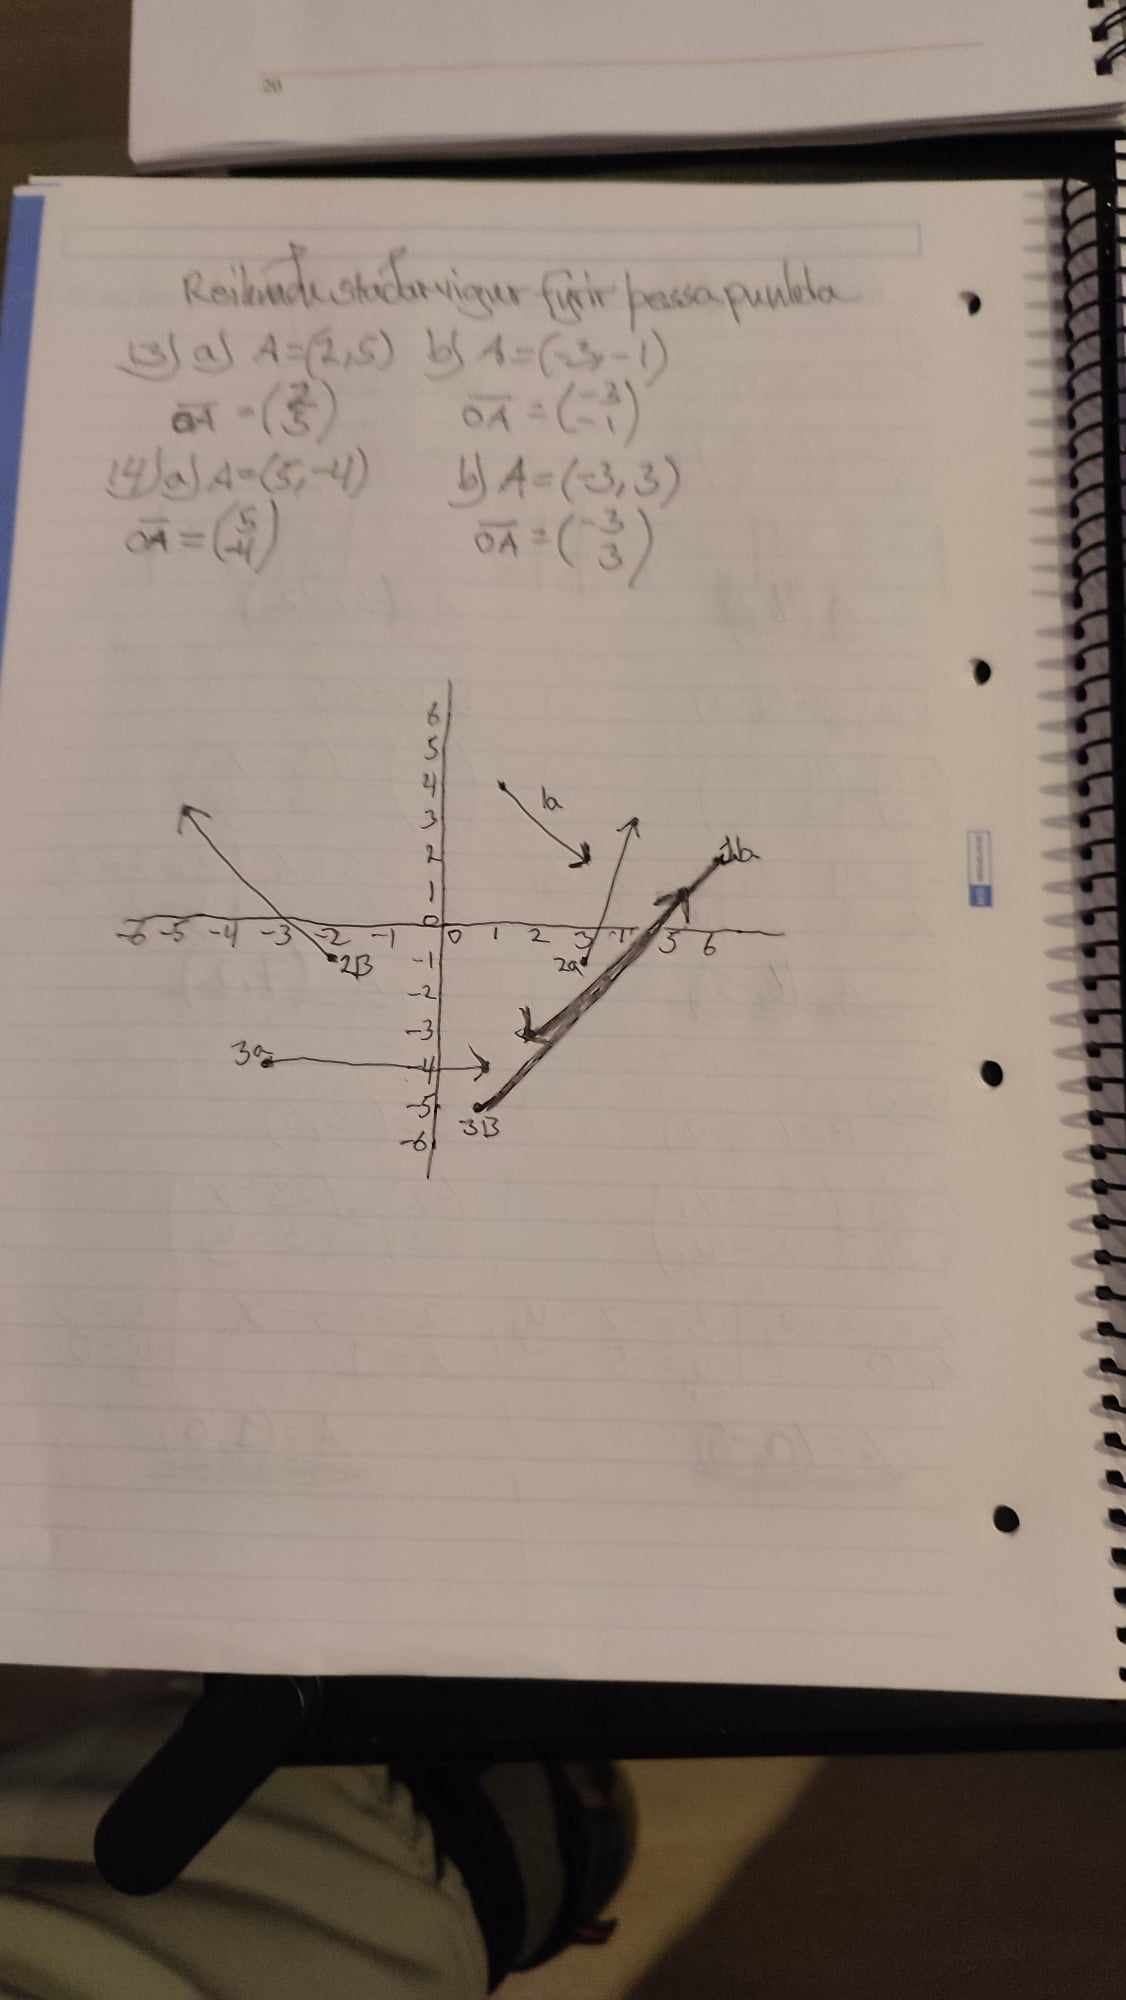 20
Reiknaðu staðarvigur fyrir þessa punkta
13) a) A=(2,5) b) A=(-3,-1)
OA = (2 5) OA = (-3 -1)
14) a) A=(5,-4) b) A=(-3,3)
OA = (5 -4) OA = (-3 3)
6
5
4 1a
3
2 1b
1
0
-6 -5 -4 -3 -2 -1 0 1 2 3 4 5 6
2B -1 2a
-2
-3
3a -4
-5
3B
-6